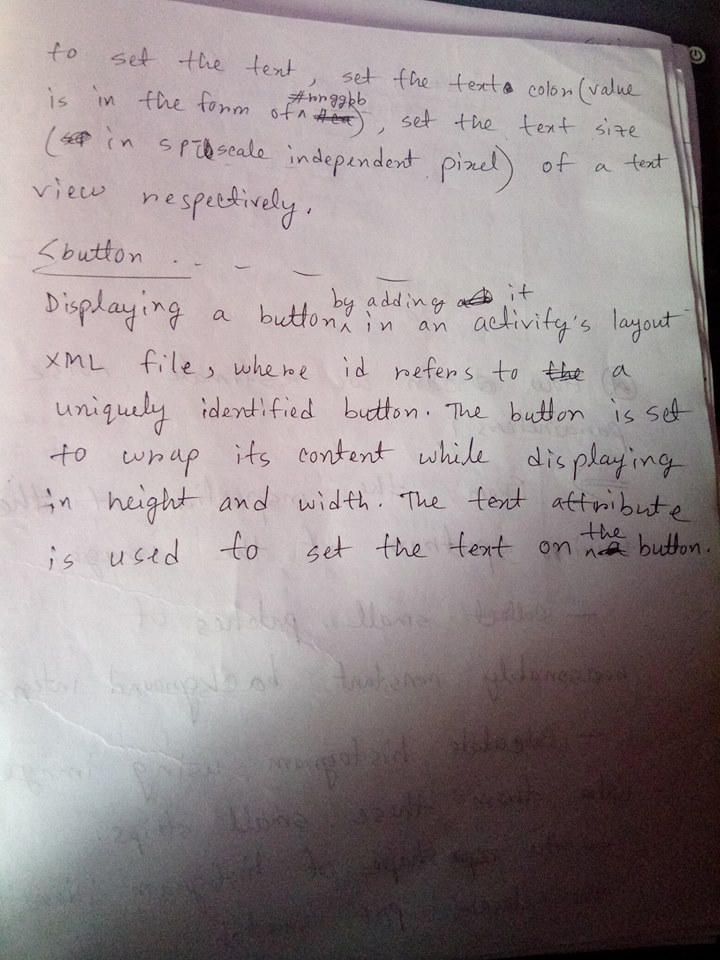 to set the text, set the text color (value
is in the form of #rrggbb), set the text size
(in sp scale independent pixel) of a text
view respectively.
<button . . - - -
Displaying a button, by adding it in an activity's layout
XML file, where id refers to a
uniquely identified button. The button is set
to wrap its content while displaying
in height and width. The text attribute
is used to set the text on the button.